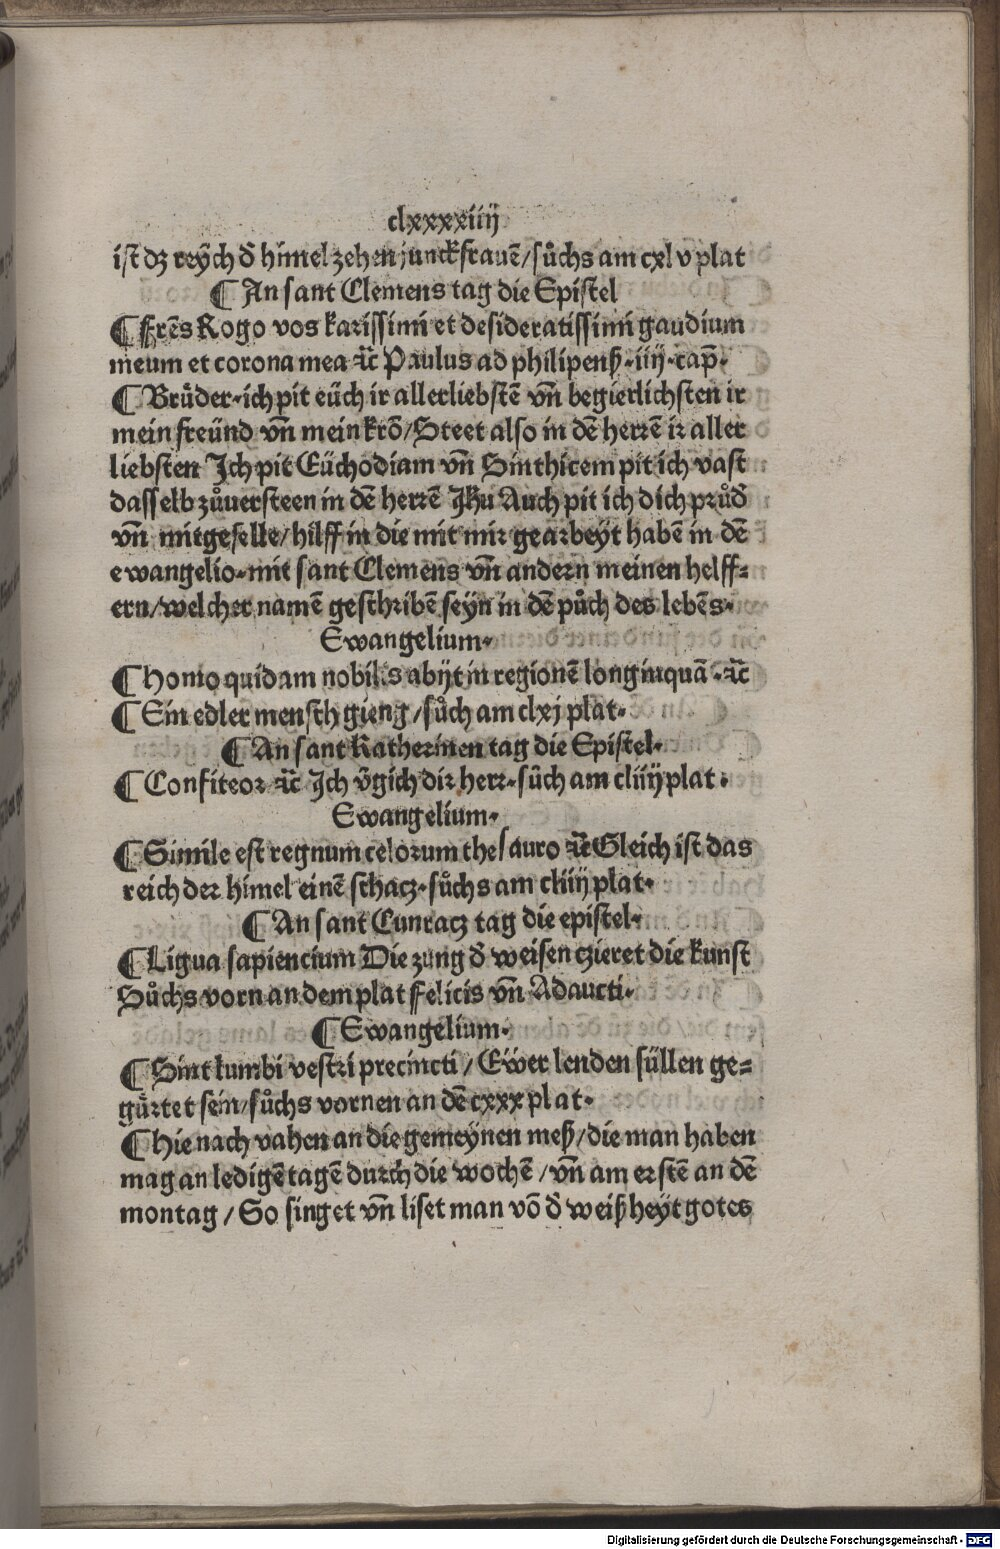 clxxxxiiij
ist dz reÿch d̄ himel zehen junckfrauē / sůchs am cxlv plat
¶ An sant Clemens tag die Epistel
¶ Frēs Rogo vos karissimi et desideratissimi gaudium
meum et corona mea ⁊c̄ Paulus ad philipenß · iiij · cap̄ ·
¶ Brüder · ich pit eüch ir allerliebstē vn̄ begierlichsten ir
mein freünd vn̄ mein krō / Steet also in dē herrē ir aller
liebsten Ich pit Eüchodiam vn̄ Sinthicem pit ich vast
dasselb zůuersteen in dē herrē Jhu Auch pit ich dich průd̄
vn̄ mitgeselle / hilff in die mit mir gearbeÿt habē in dē
ewangelio · mit sant Clemens vn̄ andern meinen helff⸗
ern / welcher namē geschribē seÿn in dē půch des lebēs ·
Ewangelium ·
¶ Homo quidam nobilis abijt in regionē longinquā · ⁊c̄
¶ Ein edler mensch gieng / sůch am clxj plat ·
¶ An sant Katherinen tag die Epistel ·
¶ Confiteor ⁊c̄ Ich v̄gich dir herr · sůch am cliiij plat ·
Ewangelium ·
¶ Simile est regnum celorum thesauro ⁊c̄ Gleich ist das
reich der himel einē schacz · sůchs am cliiij plat ·
¶ An sant Cunracz tag die epistel ·
¶ Ligua sapiencium Die zung d̄ weisen czieret die kunst
Sůchs vorn an dem plat Felicis vn̄ Adaucti ·
¶ Ewangelium ·
¶ Sint lumbi vestri precincti / Eẅer lenden süllen ge⸗
gürtet sein / sůchs vornen an dē cxxx plat ·
¶ Hie nach vahen an die gemeÿnen meß / die man haben
mag an ledigē tagē durch die wochē / vn̄ am erstē an dē
montag / So singet vn̄ liset man vō d̄ weißheÿt gotes
Digitalisierung gefördert durch die Deutsche Forschungsgemeinschaft - DFG